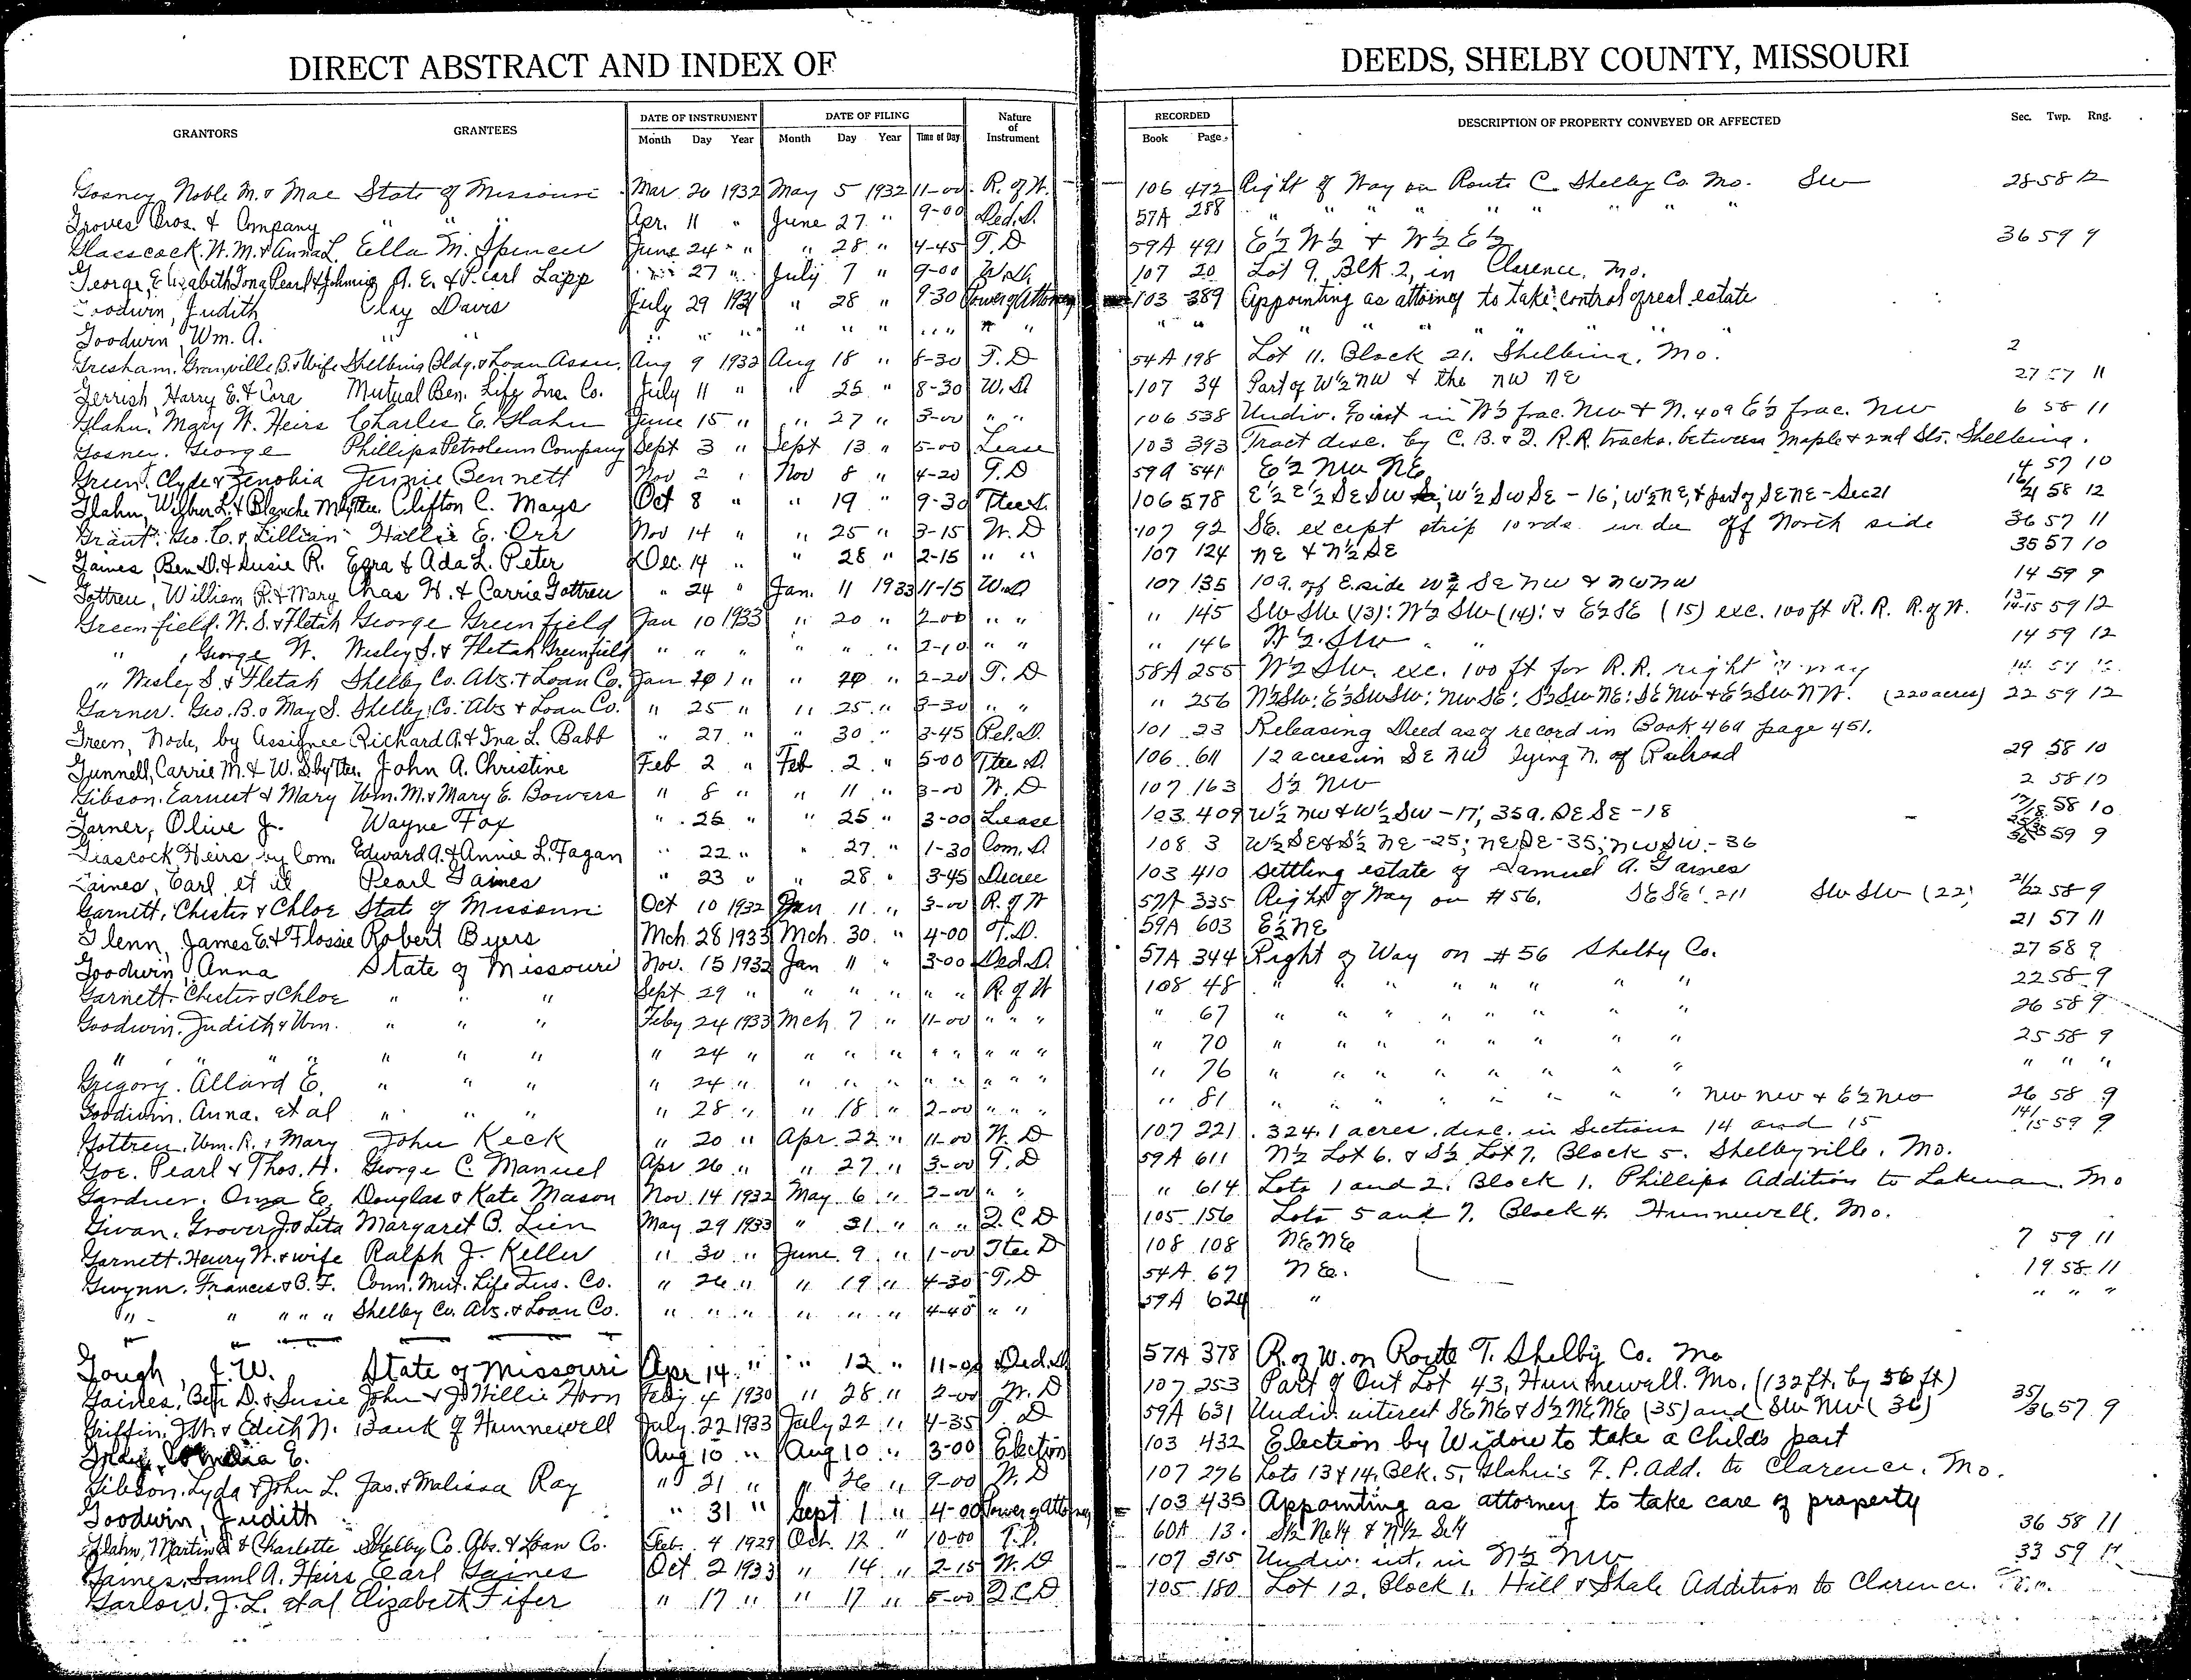 DIRECT ABSTRACT AND INDEX OF DEEDS, SHELBY COUNTY, MISSOURI
GRANTORS GRANTEES DATE OF INSTRUMENT DATE OF FILING Nature of Instrument RECORDED DESCRIPTION OF PROPERTY CONVEYED OR AFFECTED Sec. Twp. Rng.
Month Day Year Month Day Year Time of Day Book Page
Gosney, Noble M. & Mae State of Missouri Mar 20 1932 May 5 1932 11-00 R. of W. 106 472 Right of Way on Route C. Shelby Co. Mo. SW 28 58 12
Groves Bros. & Company " " " Apr. 11 " June 27 " 9-00 Ded. D. 57A 288 " " " " " " " " "
Glasscock, W. M. & Anna L. Ella M. Spencer June 24 " " 28 " 4-45 T. D 59A 491 E½ W½ & W½ E½ 36 59 9
George, Elizabeth Long Pearl & Johnnie A. E. & Pearl Lapp " 27 " July 7 " 9-00 W. D. 107 20 Lot 9, Blk 2, in Clarence, Mo.
Goodwin, Judith Clay Davis July 29 1931 " 28 " 9-30 Power of Attorney 103 389 Appointing as attorney to take control of real estate
Goodwin, Wm. A. " " " " " " " " " " " " " " " " " " " " "
Gresham, Granville B. & Wife Shelbina Bldg. & Loan Assn. Aug 9 1932 Aug 18 " 8-30 T. D 54A 198 Lot 11, Block 21, Shelbina, Mo. 2
Gerrish, Harry E. & Cora Mutual Ben. Life Ins. Co. July 11 " " 25 " 8-30 W. D 107 34 Part of W½ NW & the NW NE 27 57 11
Glahn, Mary W. Heirs Charles E. Glahn June 15 " " 27 " 3-00 " " 106 538 Undiv. int in W½ frac. NW & N. 40a E½ frac. NW 6 58 11
Gosney, George Phillips Petroleum Company Sept 3 " Sept 13 " 5-00 Lease 103 393 Tract desc. by C. B. & Q. R.R. tracks, between Maple & 2nd Sts. Shelbina.
Green, Clyde & Zenobia Jennie Bennett Nov 2 " Nov 8 " 4-20 T. D 59A 541 E½ NW NE 4 57 10
Glahn, Wilber L. & Blanche M by Ttee. Clifton C. Mays Oct 8 " " 19 " 9-30 Ttee D. 106 578 E½ E½ SE SW; W½ SW SE - 16; W½ NE, & part of SE NE - Sec 21 16/21 58 12
Grant, Geo. C. & Lillian Hallie E. Orr Nov 14 " " 25 " 3-15 W. D 107 92 SE. except strip 10 rds. wide off North side 36 57 11
Gaines, Ben D. & Susie R. Ezra & Ada L. Peter Dec. 14 " " 28 " 2-15 " " 107 124 NE & N½ SE 35 57 10
Gottren, William R. & Mary Chas H. & Carrie Gottren " 24 " Jan. 11 1933 11-15 W. D 107 135 10a. off E. side SE NW & NW NW 14 59 9
Greenfield, W. S. & Fletah George Greenfield Jan 10 1933 " 20 " 2-00 " " " 145 SW SW (13): W½ SW (14): & E½ SE (15) exc. 100 ft R. R. R. of W. 13-14-15 59 12
" , George W. Wesley S. & Fletah Greenfield " " " " " " 2-10 " " " 146 W½ SW " " 14 59 12
" Wesley S. & Fletah Shelby Co. Abs. & Loan Co. Jan " " 20 " 2-20 T. D 58A 255 W½ SW. exc. 100 ft for R.R. right of way
Garner, Geo. B. & May S. Shelby Co. Abs & Loan Co. " 25 " " 25 " 3-30 " " " 256 N½ SW: E½ SW SW: NW SE: S½ SW NE: SE NW & E½ SW NW. (220 acres) 22 59 12
Green, Node, by Assignee Richard A. & Ina L. Babb " 27 " " 30 " 3-45 Rel. D. 101 23 Releasing Deed as of record in Book 46a page 451.
Gunnell, Carrie M. & W. S. by Ttee. John A. Christine Feb 2 " Feb 2 " 5-00 Ttee D. 106 611 12 acres in SE NW lying N. of Railroad 29 58 10
Gibson, Earnest & Mary Wm. M. & Mary E. Bowers " 8 " " 11 " 3-00 W. D 107 163 S½ NW 2 58 12
Garner, Olive J. Wayne Fox " 25 " " 25 " 3-00 Lease 103 409 W½ NW & W½ SW - 17; 35a. SE SE - 18 17/18 58 10
Glascock Heirs, by Com. Edward A. & Annie L. Fagan " 22 " " 27 " 1-30 Com. D. 108 3 W½ SE & S½ NE - 25; NE SE - 35; NW SW. - 36 59 9
Gaines, Earl et al Pearl Gaines " 23 " " 28 " 3-45 Decree 103 410 Settling estate of Samuel A. Gaines
Garnett, Chester & Chloe State of Missouri Oct 10 1932 Jan 11 " 3-00 R. of W 57A 335 Right of Way on #56. SE SE (21) SW SW (22) 21/22 58 9
Glenn, James E. & Flossie Robert Byers Mch. 28 1933 Mch. 30 " 4-00 T. D. 59A 603 E½ NE 21 57 11
Goodwin, Anna State of Missouri Nov. 15 1932 Jan 11 " 3-00 Ded. D. 57A 344 Right of Way on #56 Shelby Co. 27 58 9
Garnett, Chester & Chloe " " " Sept 29 " " " " " " R. of W 108 48 " " " " " " " " 22 58 9
Goodwin, Judith & Wm. " " " Feby 24 1933 Mch 7 " 11-00 " " " " 67 " " " " " " " " 26 58 9
" " " " " " " " 24 " " " " " " " " " " 70 " " " " " " " " 25 58 9
Gregory, Allard E. " " " " 24 " " " " " " " " " " 76 " " " " " " " " " " "
Goodwin, Anna, et al " " " " 28 " " 18 " 2-00 " " " " 81 " " " " " " " " NW NW & E½ NW 26 58 9
Gottren, Wm. R. & Mary John Keck " 20 " Apr. 22 " 11-00 W. D 107 221 324.1 acres, desc. in Sections 14 and 15 14/15 59 9
Goe, Pearl & Thos. H. George C. Manuel Apr 26 " " 27 " 3-00 T. D 59A 611 N½ Lot 6. & S½ Lot 7, Block 5. Shelbyville, Mo.
Gardner, Oma E. Douglas & Kate Mason Nov. 14 1932 May 6 " 2-00 " " " 614 Lots 1 and 2, Block 1, Phillips Addition to Lakenan, Mo
Givan, Grover J. & Leta Margaret B. Lien May 29 1933 " 31 " " " Q. C. D 105 156 Lots 5 and 7, Block 4. Hunnewell, Mo.
Garnett, Henry W. & wife Ralph J. Keller " 30 " June 9 " 1-00 Ttee D 108 108 NE NE 7 59 11
Gwynn, Frances & B. F. Conn. Mut. Life Ins. Co. " 26 " " 19 " 4-30 T. D 54A 67 NE. 19 58 11
" " " " " Shelby Co. Abs. & Loan Co. " " " " " " 4-45 " " 59A 624 " " " "
Gough, J. W. State of Missouri Apr 14 " " 12 " 11-00 Ded. D. 57A 378 R. of W. on Route T. Shelby Co. Mo
Gaines, Ben D. & Susie John & J. Willie Horn Feby 4 1930 " 28 " 2-00 W. D 107 253 Part of Out Lot 43, Hunnewell. Mo. (132 ft. by 56 ft)
Griffin, J. W. & Edith N. Bank of Hunnewell July 22 1933 July 22 " 4-35 T. D 59A 631 Undiv. interest SE NE & S½ NE NE (35) and SW NW (36) 35/36 57 9
E. Aug 10 " Aug 10 " 3-00 Election 103 432 Election by Widow to take a Childs part
Gibson, Lyda & John L. Jas. & Malissa Ray " 21 " " 26 " 9-00 W. D 107 276 Lots 13 & 14, Blk. 5, Glahn's F. P. Add. to Clarence, Mo.
Goodwin, Judith " 31 " Sept 1 " 4-00 Power of Attorney 103 435 Appointing as attorney to take care of property
Glahn, Martin & Charlotte Shelby Co. Abs. & Loan Co. Feb. 4 1929 Oct. 12 " 10-00 T. D. 60A 13 S½ NE¼ & N½ SE¼ 36 58 11
Gaines, Saml A. Heirs Earl Gaines Oct 2 1933 " 14 " 2-15 W. D 107 315 Undiv. int. in N½ NW 33 59 11
Garlow, J. L. et al Elizabeth Fifer " 17 " " 17 " 5-00 Q. C. D 105 180 Lot 12, Block 1, Hill & Shale Addition to Clarence.